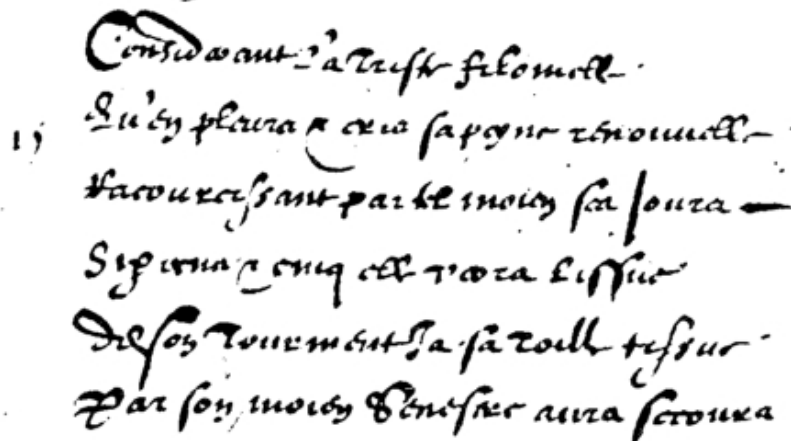 Considerant la triste filomelle
ij qu'en pleurs & cris sa peyne renouvelle
Racourcissant par tel moien ses jours
elle verra l'issue
de son tourment ja sa toille tissue
Par son moien Senestre aura secours